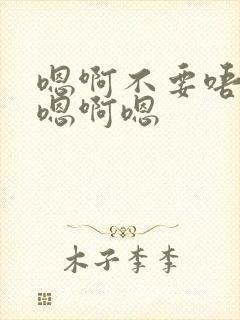 嗯啊不要唔
嗯啊嗯
木子李李